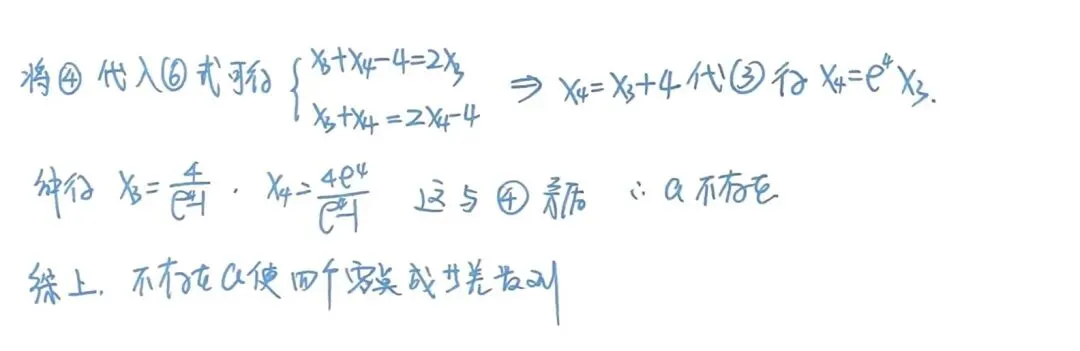 将④代入⑥式可得 { x₃+x₄-4=2x₃
x₃+x₄=2x₄-4 ⇒ x₄=x₃+4 代③得 x₄=e⁴x₃.
解得 x₃=4/(e⁴-1) . x₄=4e⁴/(e⁴-1) 这与④矛盾 ∴ a不存在
综上. 不存在a使四个零点成等差数列